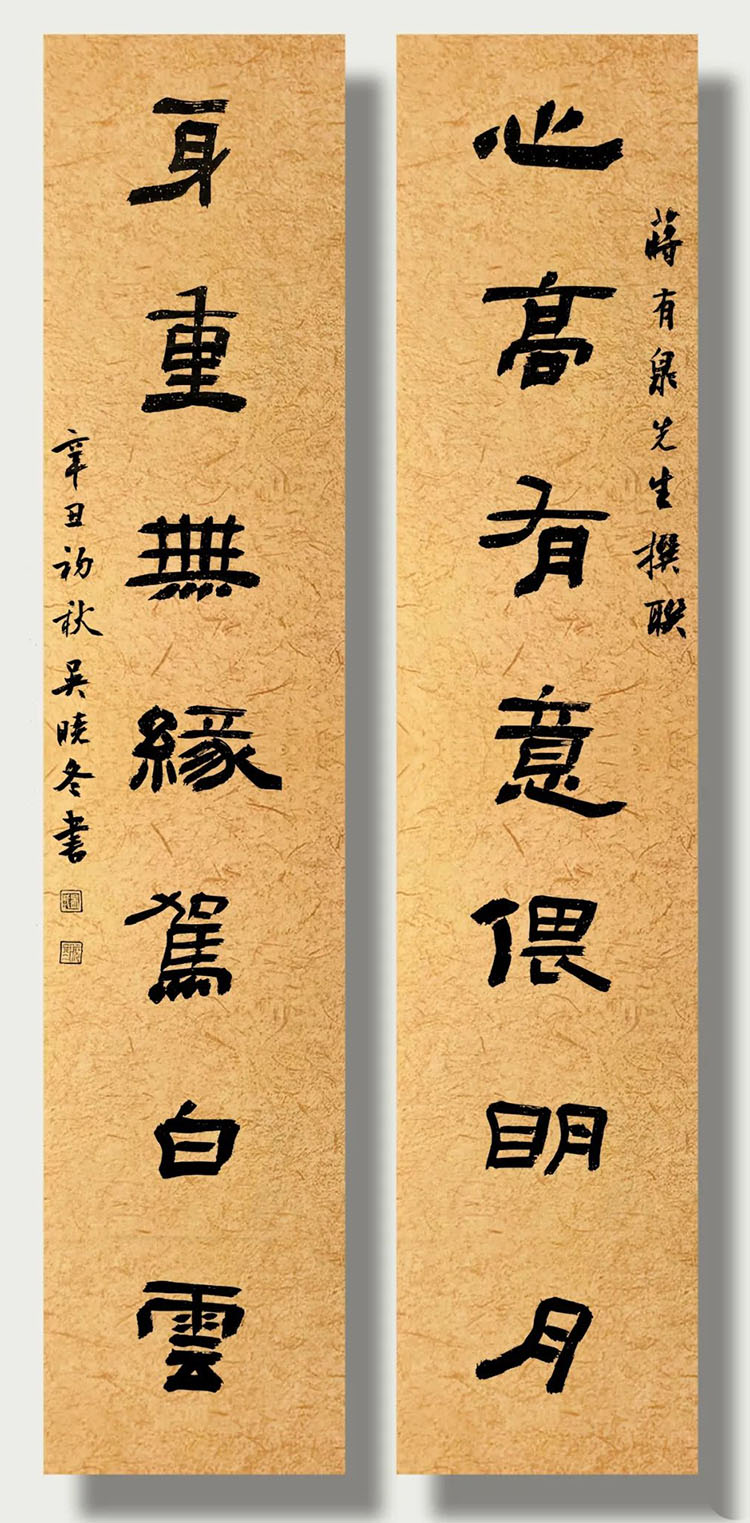 心高有意偎明月
蔣有泉先生撰聯
身重無緣駕白雲
辛丑初秋吴曉冬書